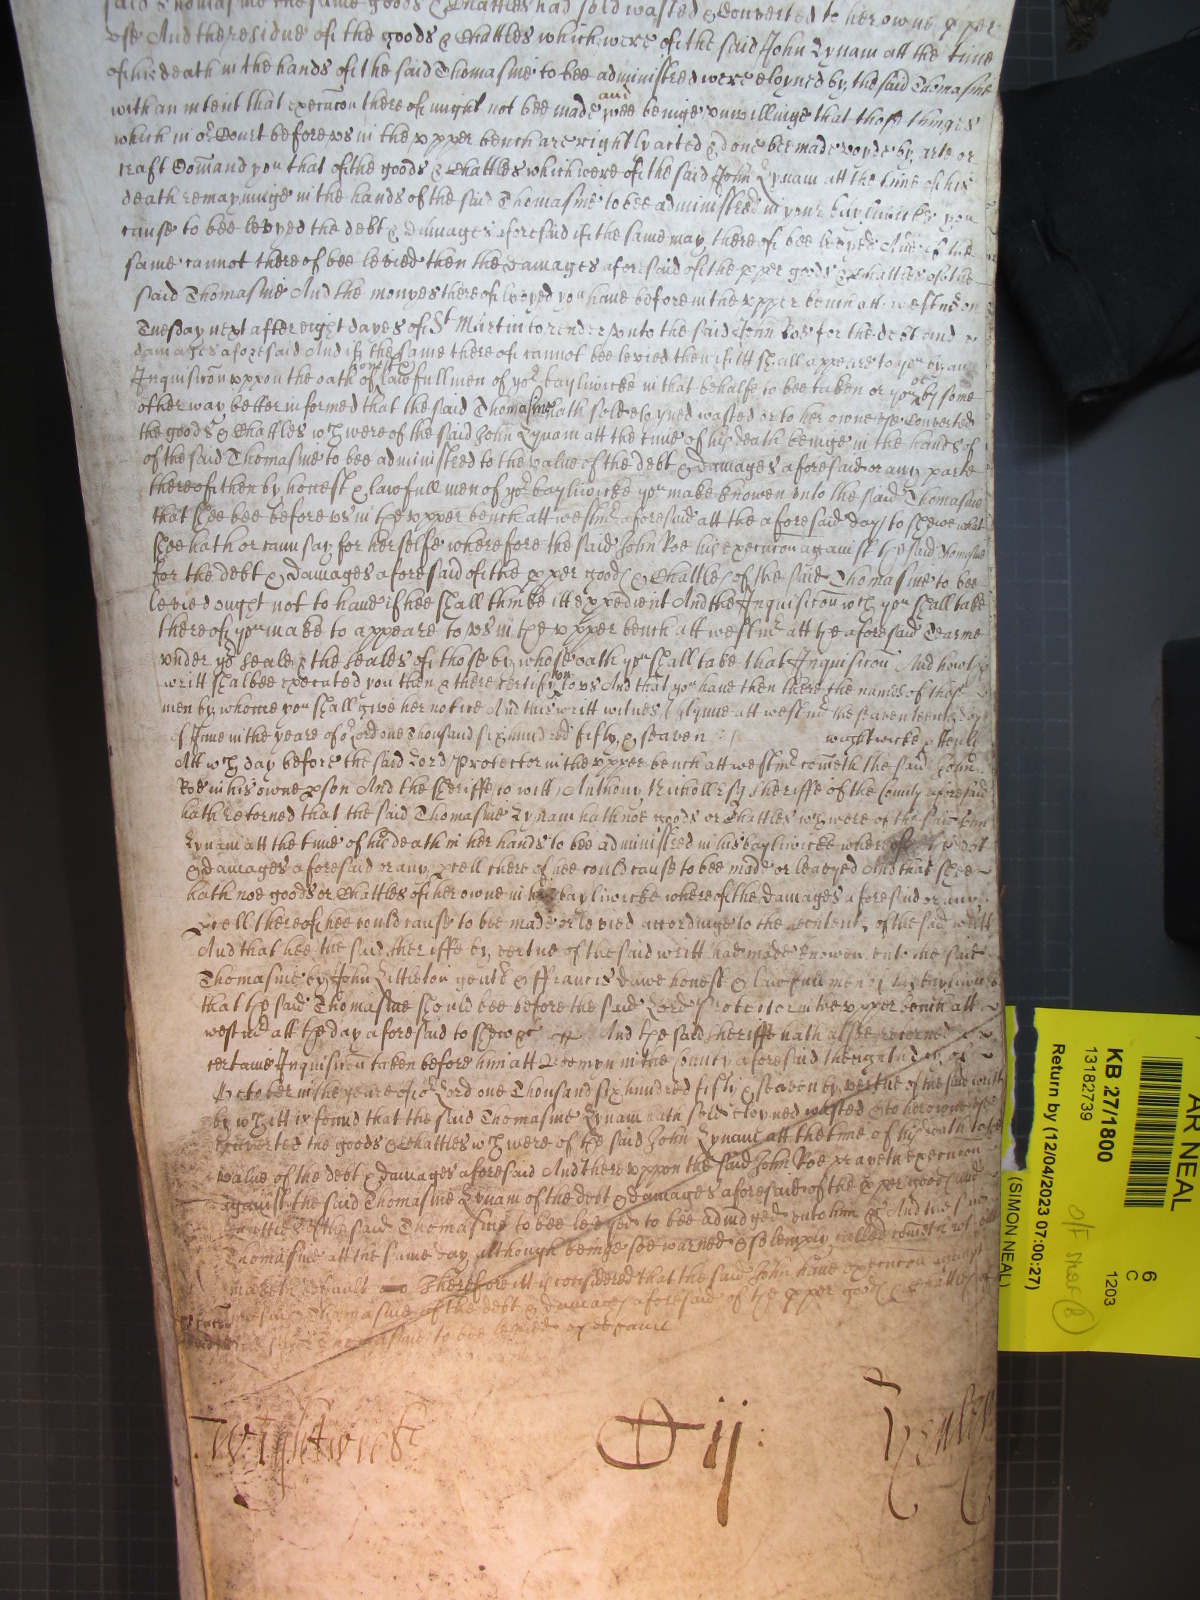 said Thomasine the same goods & Chattles had sold wasted & Converted to her owne pper
use And the residue of the goods & Chattles which were of the said John Lynam att the time
of his death in the hands of the said Thomasine to bee administred were eloyned by the said Thomasine
with an intent that execucon thereof might not bee made and wee beinge unwillinge that those thinges
which in or Court before us in the upper bench are rightly acted & done bee made voyde by arte or
craft Comand you that of the goods & Chattles which were of the said John Lynam att the time of his
death remayninge in the hands of the said Thomasine to bee administred in your bayliwicke you
cause to bee levyed the debt & damages aforesaid if the same may thereof bee levyed And if the
same cannot thereof bee levied then the damages aforesaid of the pper goods & Chattles of the
said Thomasine And the monyes thereof levyed you have before in the upper bench att westmr on
Tuesday next after eight dayes of St Martin to render unto the said John Roe for the debt and
damages aforesaid And if the same thereof cannot bee levied then if itt shall appeare to you by an
Inquisicon uppon the oath of lawfull men of yor bayliwicke in that behalfe to bee taken or by some
other way better informed that the said Thomasine hath sold eloyned wasted or to her owne use Converted
the goods & Chattles wch were of the said John Lynam att the time of his death beinge in the hands of
of the said Thomasine to bee administred to the value of the debt & damages aforesaid or any parte
thereof then by honest & lawfull men of yor bayliwicke you make knowen unto the said Thomasine
that shee bee before us in the upper bench att westmr aforesaid att the aforesaid day to shewe what
shee hath or cann say for herselfe wherefore the said John Roe his execucon against the said Thomasine
for the debt & damages aforesaid of the pper goods & Chattles of the said Thomasine to bee
levied ought not to have if hee shall thinke itt expedient And the Inquisicon wch you shall take
thereof you make to appeare to us in the upper bench att westmr att the aforesaid Tearme
under yor seale & the seales of those by whose oath you shall take that Inquisicon And how
writt shalbee executed you then & there certify to us And that you have then there the names of those
men by whome you shall give her notice And this writt witnes Glynne att westmr the seaventeenth day
of June in the yeare of or Lord one thousand six hundred fifty & seaven wightwicke & Henly
Att wch day before the said Lord Protector in the upper bench att westmr cometh the said John
Roe in his owne pson And the Sheriffe to witt Anthony Nicholl Esqr Sheriffe of the County aforesaid
hath retorned that the said Thomasine Lynam hath noe goods or Chattles wch were of the said John
Lynam att the time of his death in her hands to bee administred in his bayliwicke whereof the debt
& damages aforesaid or any pcell thereof hee could cause to bee made or leavyed And that shee
hath noe goods or Chattles of her owne in his bayliwicke whereof the damages aforesaid or any
pcell thereof hee could cause to bee made or levied accordinge to the of the said writt
And that hee the said Sheriffe by vertue of the said writt had made knowen unto the said
Thomasine by John Littleton gentl & ffrancis dawe honest & lawfull men of his bayliwicke
that the said Thomasine should bee before the said Lord Protector in the upper bench att
westmr att the day aforesaid to shewe &c And the said Sheriffe hath alsoe retorned a
certaine Inquisicon taken before him att in the County aforesaid the eighth day of
October in the yeare of or Lord one Thousand six hundred fifty & seaven by vertue of the said writt
by wch itt is found that the said Thomasine Lynam hath sold eloyned wasted & to her owne use
Converted the goods & Chattles wch were of the said John Lynam att the time of his death to the
value of the debt & damages aforesaid And thereuppon the said John Roe prayeth execucon
against the said Thomasine Lynam of the debt & damages aforesaid of the pper goods and
Chattles of the said Thomasine to bee levyed to bee adiudged unto him &c And the said
Thomasine att the same day although beinge soe warned & solemply called cometh not but
maketh default Therefore itt is considered that the said John have execucon against
the said Thomasine of the debt & damages aforesaid of the pper goods & Chattles of
the said Thomasine to bee levied by default
Wightwick
ij
Henley
AR NEAL
KB 27/1800
13182739
Return by (12/04/2023 07:00:27)
(SIMON NEAL)
6
C
1203